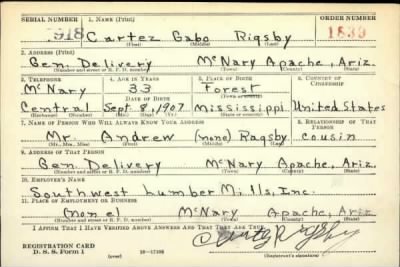 SERIAL NUMBER 1. NAME (Print) ORDER NUMBER
918 Cartez Gabo Rigsby 1839
(First) (Middle) (Last)
2. ADDRESS (Print)
Gen. Delivery McNary Apache, Ariz.
(Number and street or R. F. D. number) (Town) (County) (State)
3. TELEPHONE 4. AGE IN YEARS 5. PLACE OF BIRTH 6. COUNTRY OF CITIZENSHIP
McNary 33 Forest
DATE OF BIRTH
Central Sept. 8, 1907 Mississippi United States
(Exchange) (Number) (Mo.) (Day) (Yr.) (State or country)
7. NAME OF PERSON WHO WILL ALWAYS KNOW YOUR ADDRESS 8. RELATIONSHIP OF THAT PERSON
Mr. Andrew (none) Ragsby cousin
(Mr., Mrs., Miss) (First) (Middle) (Last)
9. ADDRESS OF THAT PERSON
Gen. Delivery McNary Apache, Ariz.
(Number and street or R. F. D. number) (Town) (County) (State)
10. EMPLOYER'S NAME
Southwest Lumber Mills, Inc.
11. PLACE OF EMPLOYMENT OR BUSINESS
McNary Apache, Ariz
(Number and street or R. F. D. number) (Town) (County) (State)
I AFFIRM THAT I HAVE VERIFIED ABOVE ANSWERS AND THAT THEY ARE TRUE.
Rigsby
REGISTRATION CARD
D. S. S. Form 1 (over) (Registrant's signature)